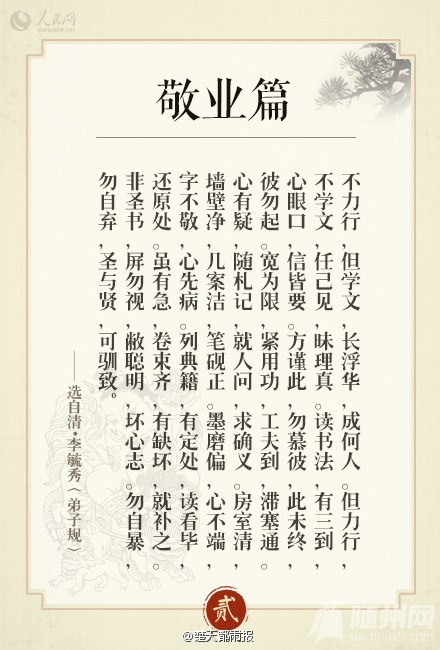 人民网
people.cn
敬业篇
不力行，但学文，长浮华，成何人。但力行，
不学文，任己见，昧理真。读书法，有三到，
心眼口，信皆要。方谨此，勿慕彼，此未终，
彼勿起。宽为限，紧用功，工夫到，滞塞通。
心有疑，随札记，就人问，求确义。房室清，
墙壁净，几案洁，笔砚正。墨磨偏，心不端，
字不敬，心先病。列典籍，有定处，读看毕，
还原处。虽有急，卷束齐，有缺坏，就补之。
非圣书，屏勿视，敝聪明，坏心志。勿自暴，
勿自弃，圣与贤，可驯致。
——选自清·李毓秀《弟子规》
贰
随州网
@楚天都市报